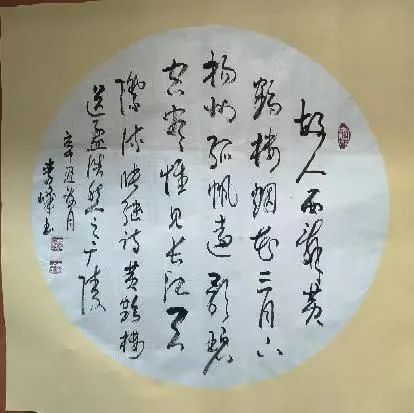 故人西辞黄
鶴楼烟花三月下
揚州孤帆遠影碧
空尽惟见长江天
際流 诗黄鶴楼
送孟浩然之广陵
辛丑 月
李 书